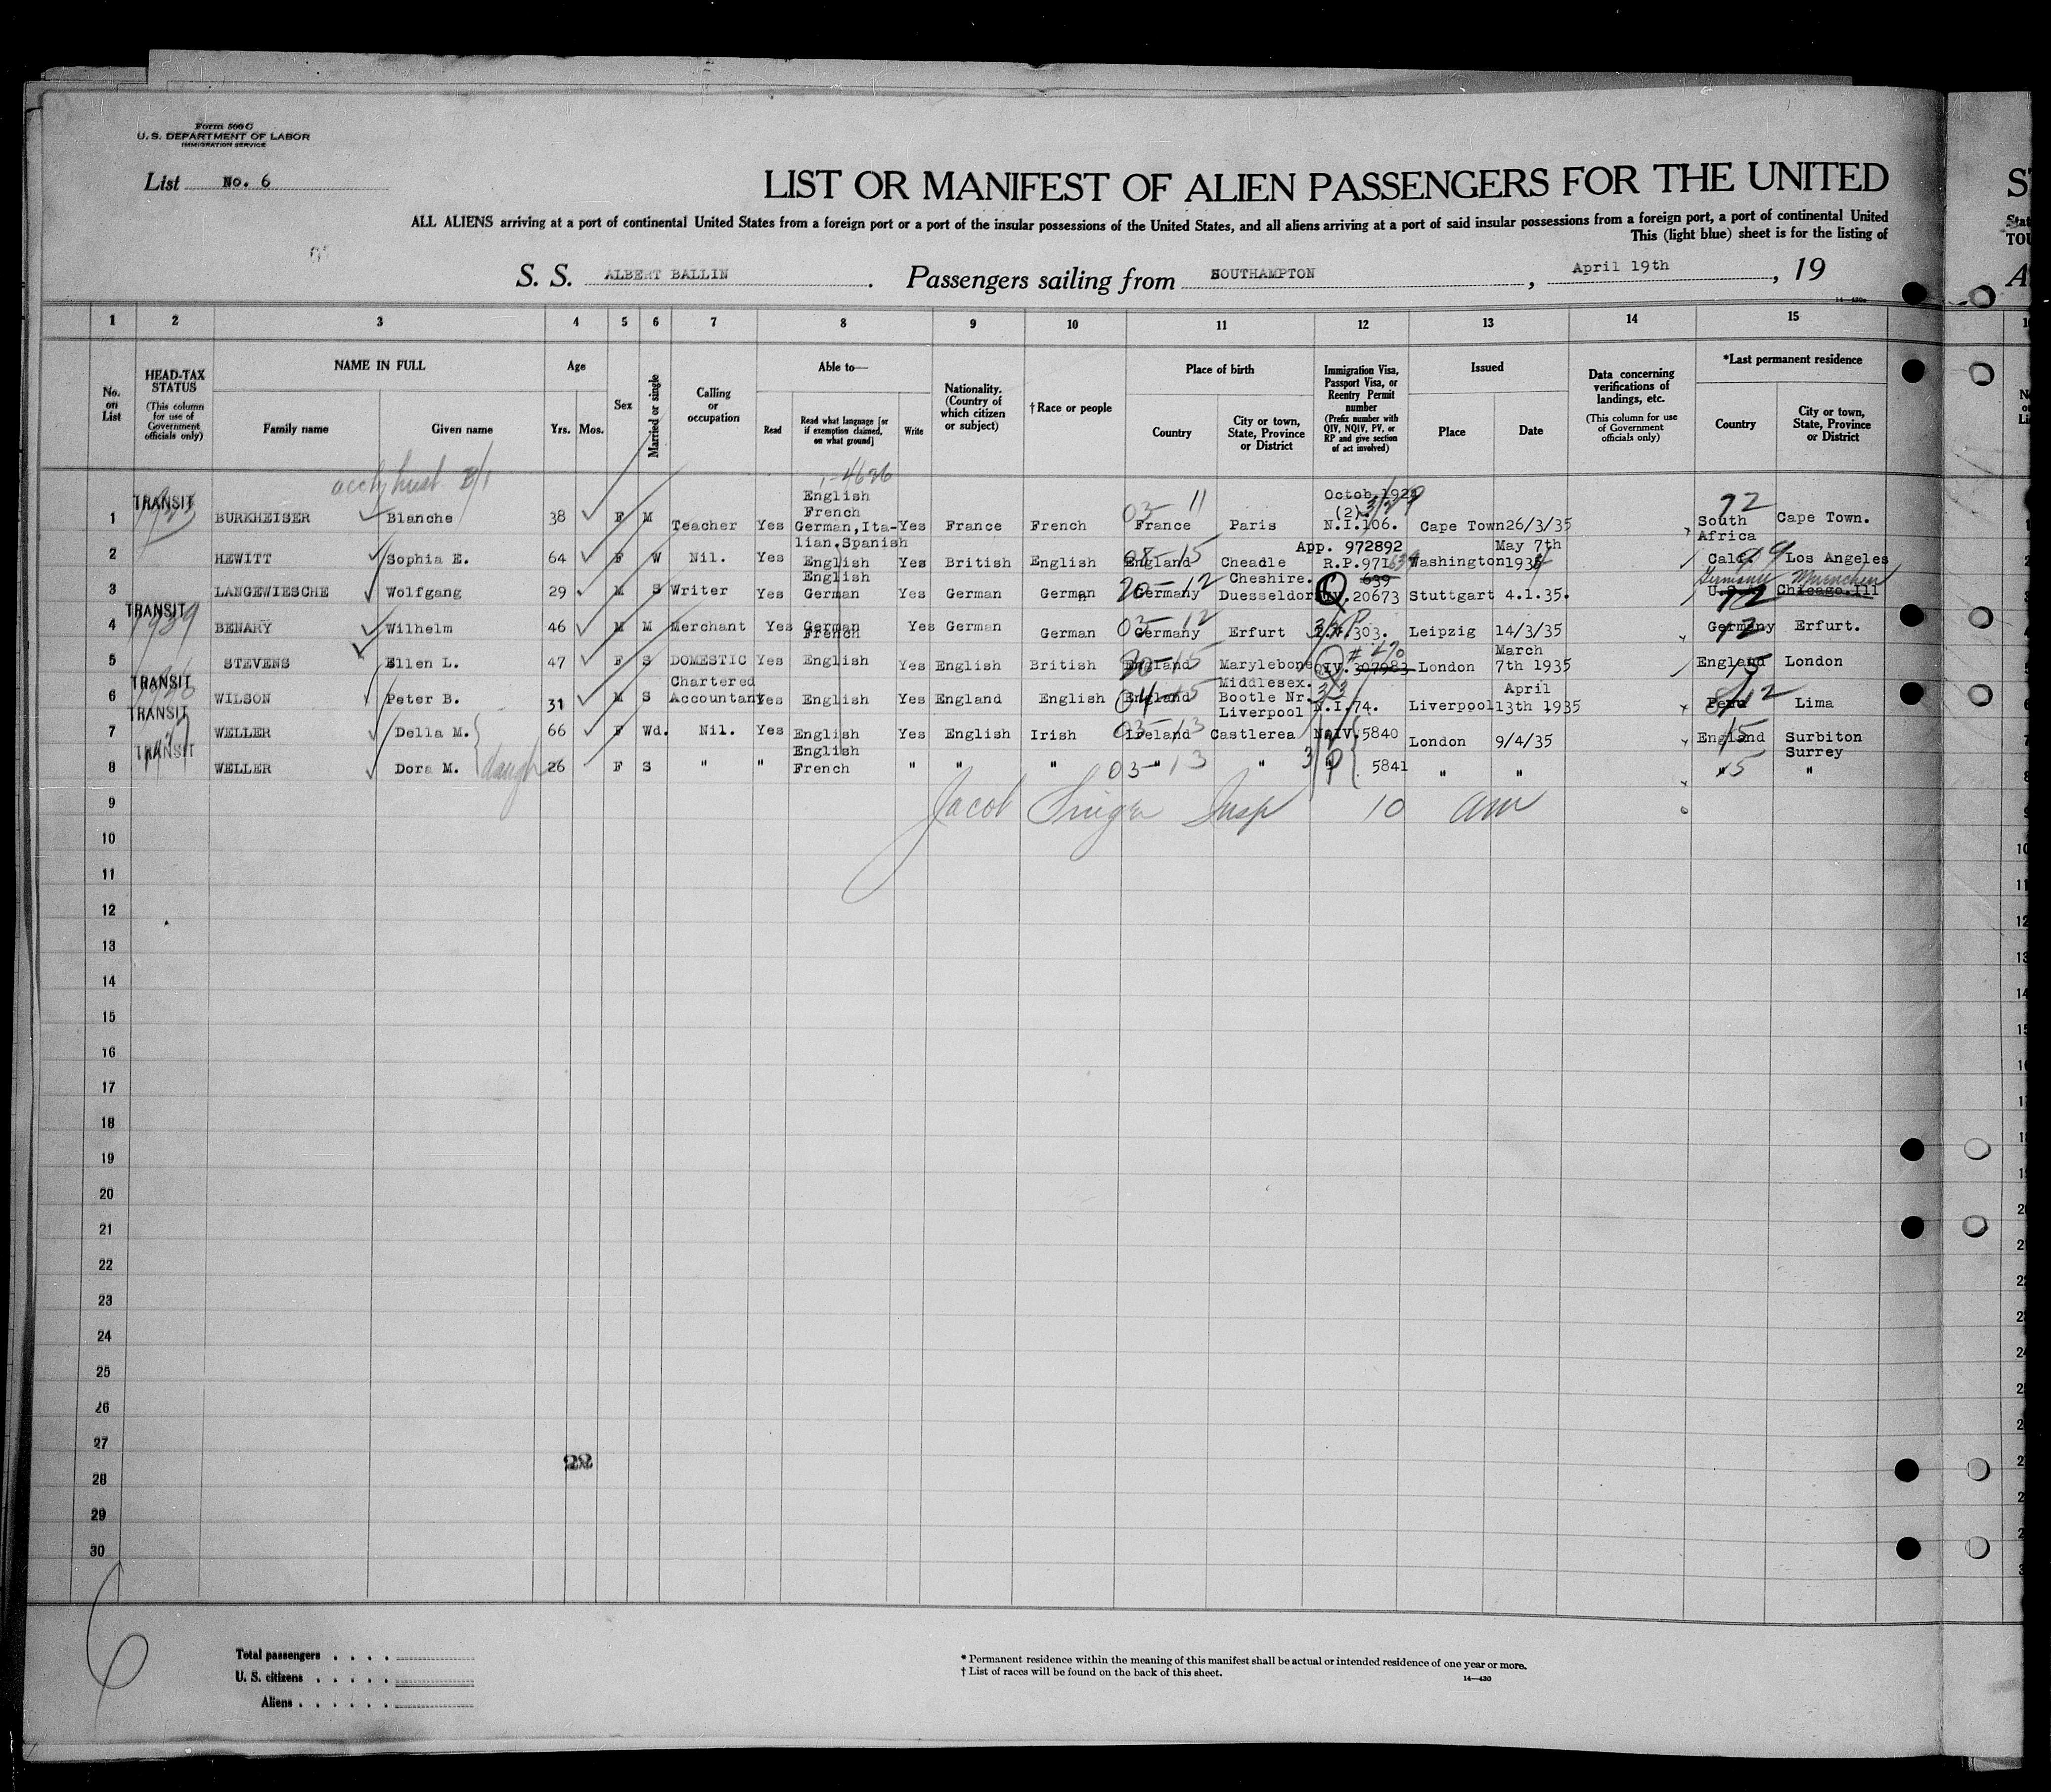 Form 500 C
U. S. DEPARTMENT OF LABOR
IMMIGRATION SERVICE
List No. 6
LIST OR MANIFEST OF ALIEN PASSENGERS FOR THE UNITED
ALL ALIENS arriving at a port of continental United States from a foreign port or a port of the insular possessions of the United States, and all aliens arriving at a port of said insular possessions from a foreign port, a port of continental United
This (light blue) sheet is for the listing of
S. S. ALBERT BALLIN. Passengers sailing from SOUTHAMPTON, April 19th, 19
1 2 3 4 5 6 7 8 9 10 11 12 13 14 15
No. on List
HEAD-TAX STATUS (This column for use of Government officials only)
NAME IN FULL
Family name Given name
Age
Yrs. Mos.
Sex
Married or single
Calling or occupation
Able to—
Read Read what language [or if exemption claimed, on what ground] Write
Nationality. (Country of which citizen or subject)
†Race or people
Place of birth
Country City or town, State, Province or District
Immigration Visa, Passport Visa, or Reentry Permit number (Prefix number with QIV, NQIV, PV, or RP and give section of act involved)
Issued
Place Date
Data concerning verifications of landings, etc. (This column for use of Government officials only)
*Last permanent residence
Country City or town, State, Province or District
1 TRANSIT BURKHEISER Blanche 38 F M Teacher Yes English French German, Italian.Spanish Yes France French France Paris (2) N.I.106. Cape Town 26/3/35 South Africa Cape Town.
2 HEWITT Sophia E. 64 F W Nil. Yes English Yes British English England Cheadle Cheshire. App. 972892 R.P.971639 Washington May 7th 1934 Calif Los Angeles
3 LANGEWIESCHE Wolfgang 29 M S Writer Yes English German Yes German German Germany Duesseldorf QIV.20673 Stuttgart 4.1.35. Germany Muenchen U.S.A. Chicago.Ill
4 TRANSIT BENARY Wilhelm 46 M M Merchant Yes German French Yes German German Germany Erfurt 303. Leipzig 14/3/35 Germany Erfurt.
5 STEVENS Ellen L. 47 F S DOMESTIC Yes English Yes English British England Marylebone Middlesex. QIV.307983 London March 7th 1935 England London
6 TRANSIT WILSON Peter B. 31 M S Chartered Accountant Yes English Yes England English England Bootle Nr. Liverpool N.I.74. Liverpool April 13th 1935 Peru Lima
7 TRANSIT WELLER Della M. 66 F Wd. Nil. Yes English Yes English Irish Ireland Castlerea 5840 London 9/4/35 England Surbiton Surrey
8 TRANSIT WELLER Dora M. daugh 26 F S " " English French " " " " " 5841 " " " "
9 Jacob Singer Insp 10 am
10
11
12
13
14
15
16
17
18
19
20
21
22
23
24
25
26
27
28
29
30
22
6
Total passengers
U. S. citizens
Aliens
* Permanent residence within the meaning of this manifest shall be actual or intended residence of one year or more.
† List of races will be found on the back of this sheet.
14—430